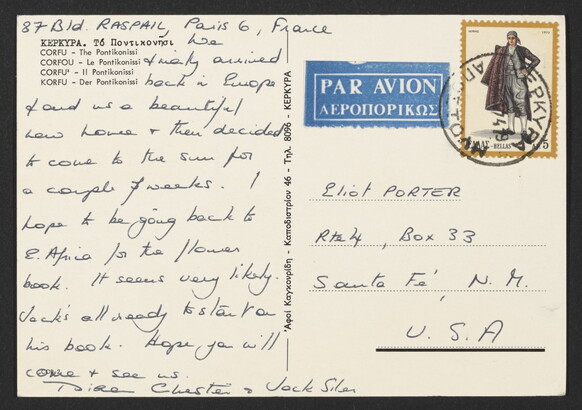 37 Bld. RASPAIL, Paris 6, France
ΚΕΡΚΥΡΑ. Τό Ποντικονήσι
CORFU - The Pontikonissi
CORFOU - Le Pontikonissi
CORFU' - Il Pontikonissi
KORFU - Der Pontikonissi
We
finally arrived
back in Europe
and a beautiful
new house & then decided
to come to the sun for
a couple of weeks. I
hope to be going back to
E. Africa for the flower
book. It seems very likely.
Jack's all ready to start on
his book. Hope you will
come & see us.
Diren Chester & Jack Siler
Ἀφοί Καγκουρίδη - Καποδιστρίου 46 - Τηλ. 8096 - ΚΕΡΚΥΡΑ
PAR AVION
ΑΕΡΟΠΟΡΙΚΩΣ
ΕΛΛΑΣ-HELLAS
5
ΚΕΡΚΥΡΑ
Eliot PORTER
Rte 4, Box 33
Santa Fé, N.M.
U.S.A